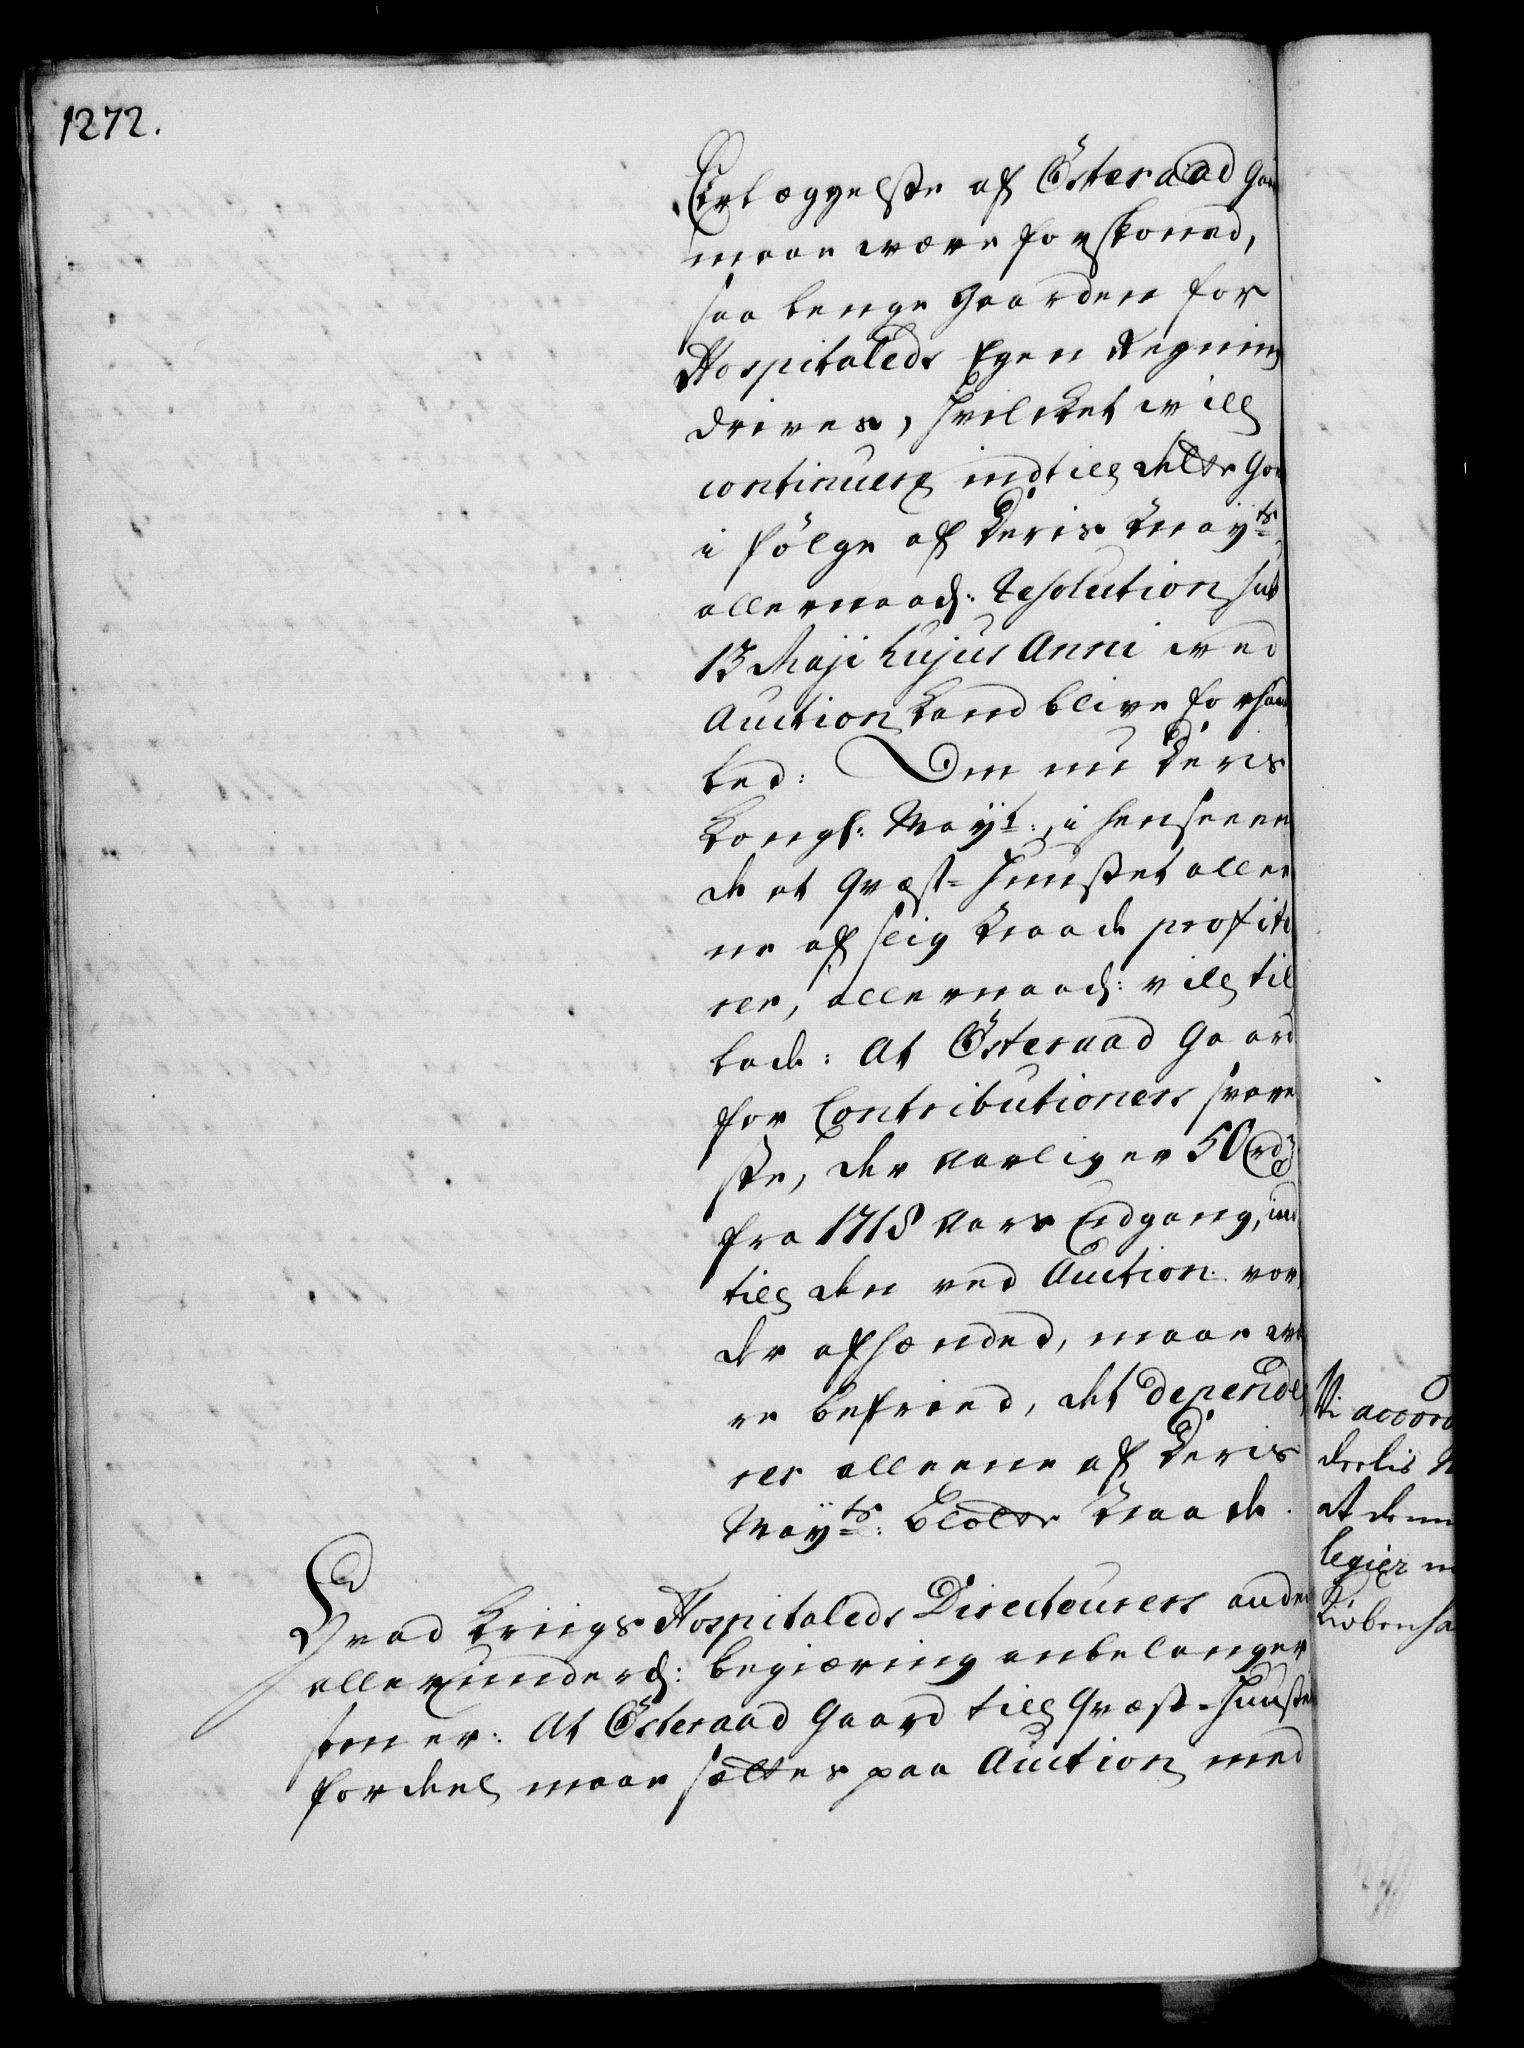 1272.
Erlæggelse af Østeraad
maae være forskoned,
saa lenge Gaarden for
Hospitaleds Egen Regning
drives, hvilcket vill
continuere indtill dette
i følge af Deris Mayts
allernaad: Resolution sub
13 Maji hujus Anni ved
Auction kand blive forhand
led: Om nu Deris
Kongl: Mayt:, i henseen
de at Qvæst-Huuset allee
ne af slig Naade profite
rer, allernaad: vill til
lade: At Østeraad Gaard
for Contributioners svarel
se, der Aarlig er 50 rd
fra 1718 Aars Udgang, ind
till den ved Auction vor
der afhænded, maae væ
re befried, det depende
rer alleene af Deris
Mayts: blotte Naade.
Hvad Krigs Hospitaleds Directeurers anden
allerunderd: begiæring anbelanger
som er: At Østeraad Gaard till Qvæst-Huusets
fordeel maae sættes paa Auction med
Vi accord
deelis
at denne
legier
Kiøbenha